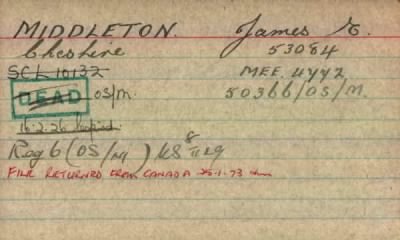 MIDDLETON. James E.
Cheshire 53084
SCL 10132 MEE. 4442
DEAD OS/M. 50366/OS/M.
16.2.26
Reg 6 (OS/M) 8
FILE RETURNED FROM CANADA 25.1.73